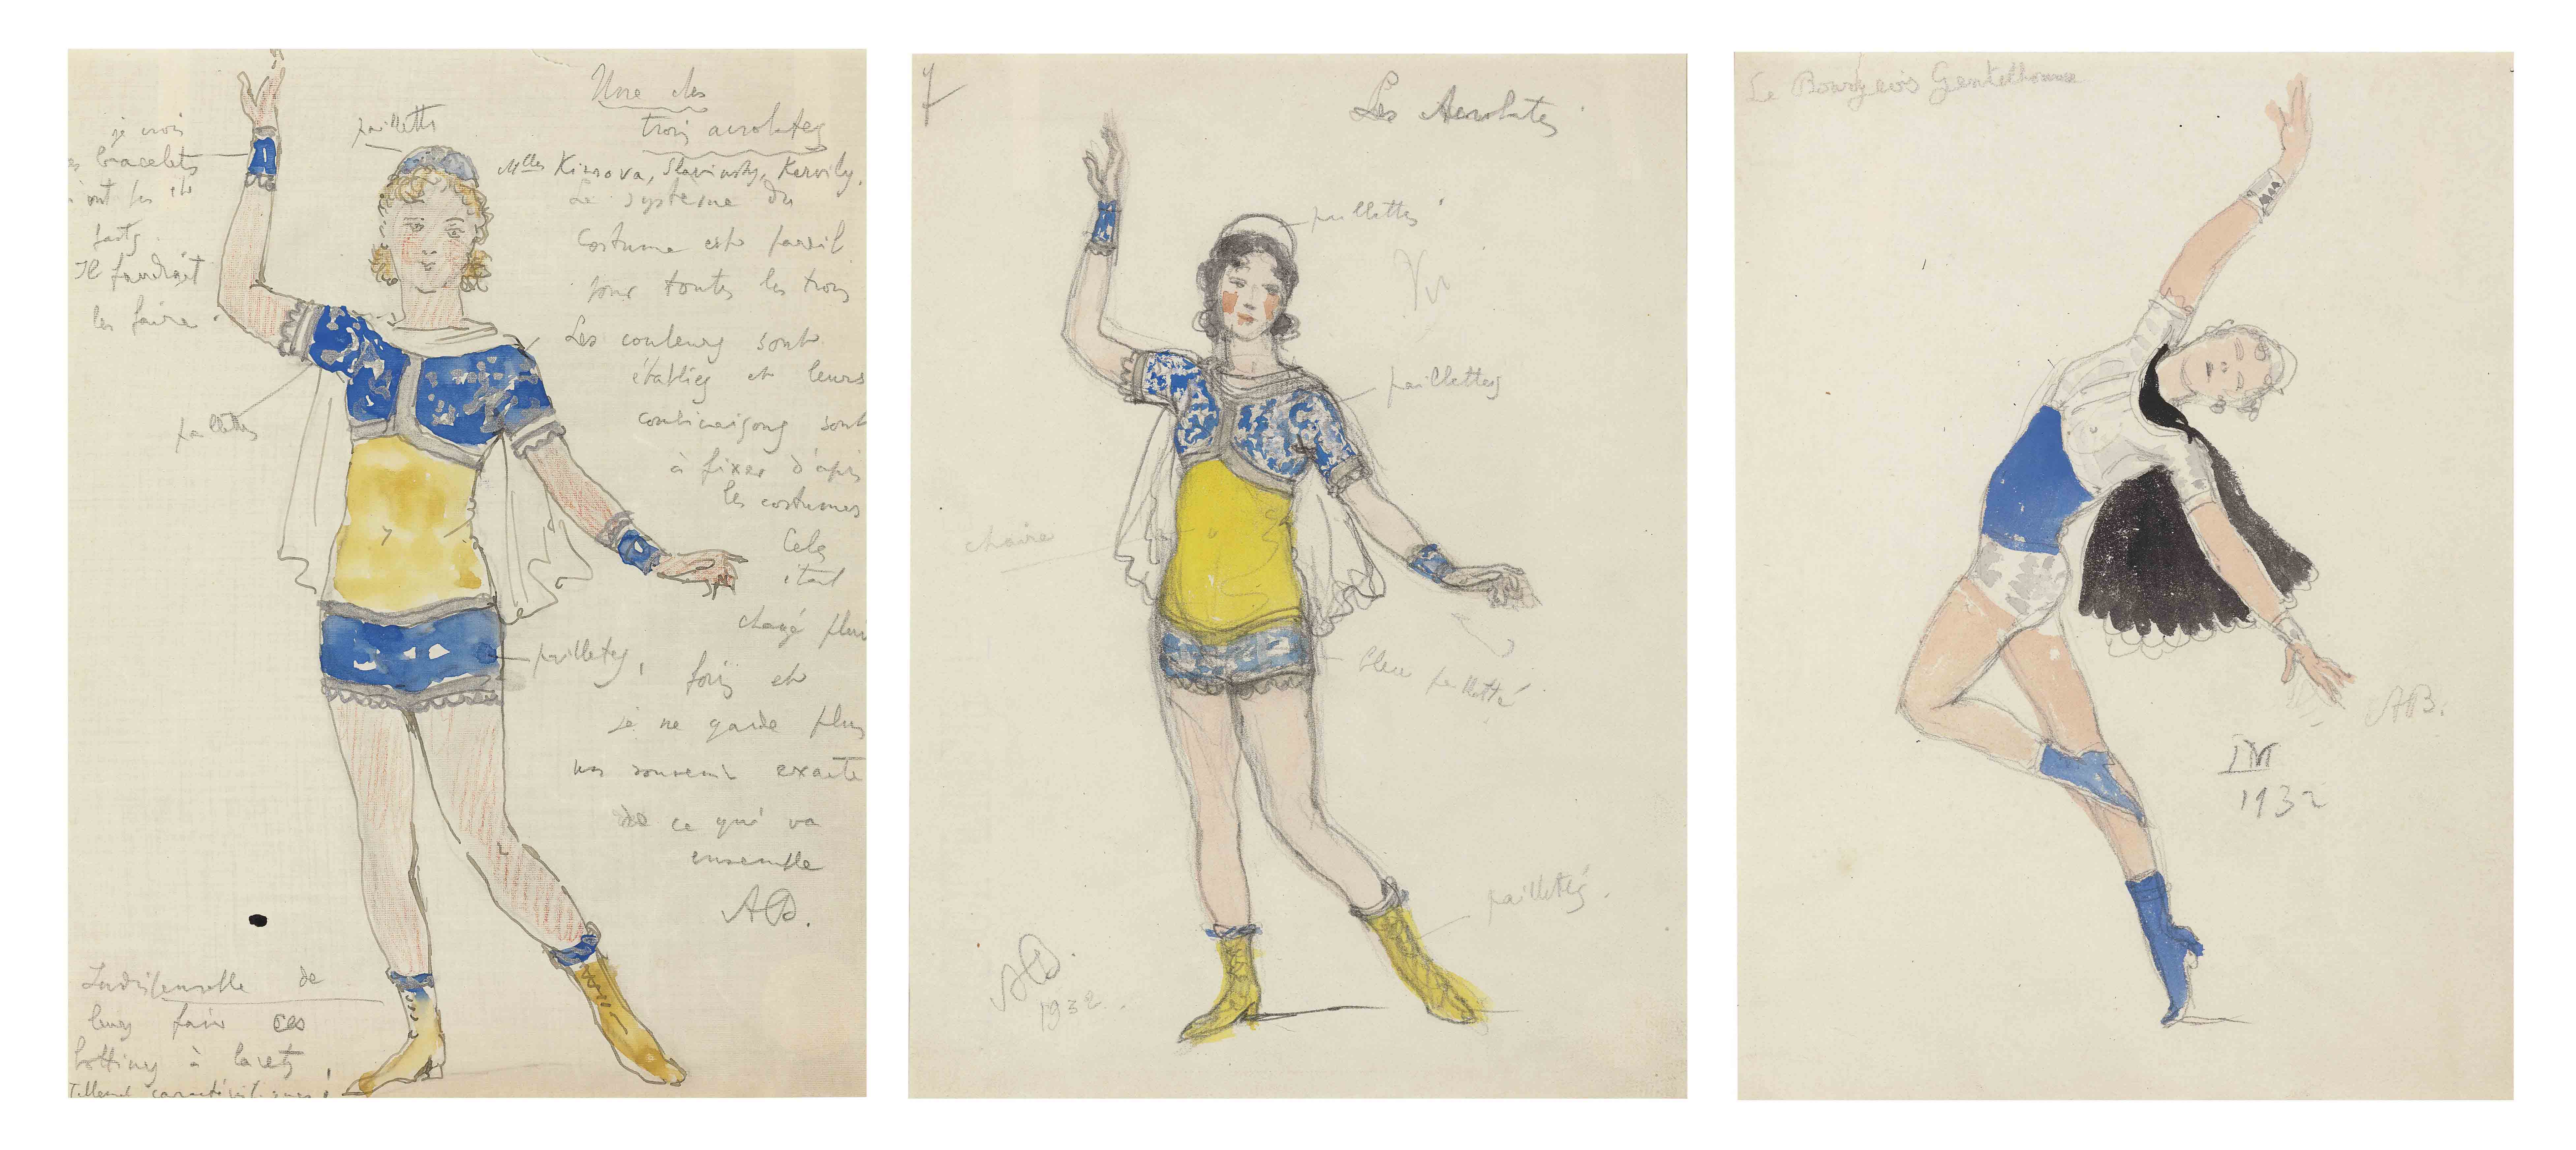 Une des
trois acrobates
Mlles Kirsova, Slavinsky, Kervily.
Le système du
Costume est pareil
pour toutes les trois
Les couleurs sont
établies et leurs
combinaisons sont
à fixer d'après
les costumes
Cela
était
changé plus
fois et
je ne garde plus
un souvenir exacte
de ce qui va
ensemble
AB.
je crois
bracelets
ont pas été
faits.
Il faudrait
les faire.
paillettes
paillettes
paillettes,
Indispensable de
leur faire ces
bottines à lacets
Tellement caractéristiques!
7
Les Acrobates
paillettes
Vu
paillettes
chaire
bleu pailletté
pailletés.
AB.
1932.
Le Bourgeois Gentelhomme
AB.
1932